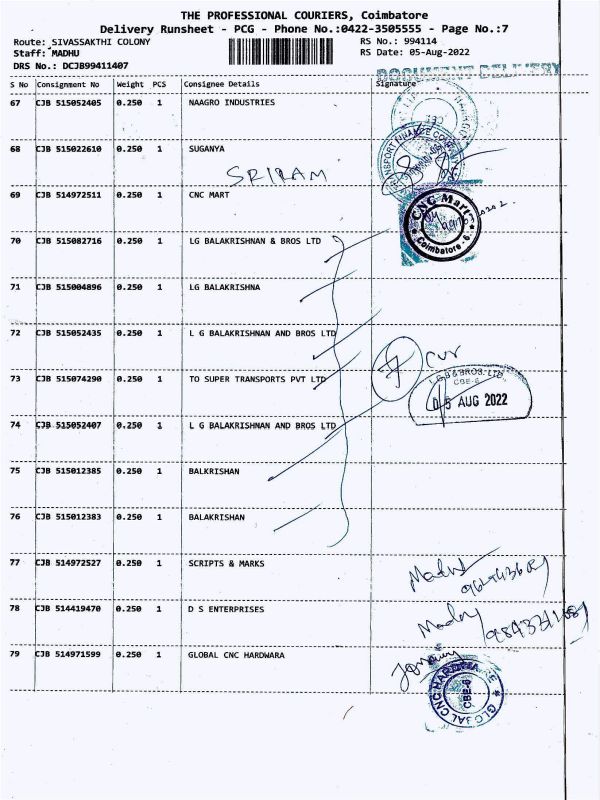 THE PROFESSIONAL COURIERS, Coimbatore
Delivery Runsheet - PCG - Phone No.:0422-3505555 - Page No.:7
Route: SIVASSAKTHI COLONY RS No.: 994114
Staff: MADHU RS Date: 05-Aug-2022
DRS No.: DCJB99411407
DOCUMENT DELIVERY
S No Consignment No Weight PCS Consignee Details Signature
67 CJB 515052405 0.250 1 NAAGRO INDUSTRIES
68 CJB 515022610 0.250 1 SUGANYA
SRIRAM
69 CJB 514972511 0.250 1 CNC MART
CNC Mart
Coimbatore - 6.
70 CJB 515082716 0.250 1 LG BALAKRISHNAN & BROS LTD
71 CJB 515004896 0.250 1 LG BALAKRISHNA
72 CJB 515052435 0.250 1 L G BALAKRISHNAN AND BROS LTD
7
73 CJB 515074290 0.250 1 TO SUPER TRANSPORTS PVT LTD
L.G.B & BROS. LTD.
CBE-6
05 AUG 2022
74 CJB 515052407 0.250 1 L G BALAKRISHNAN AND BROS LTD
75 CJB 515012385 0.250 1 BALKRISHAN
76 CJB 515012383 0.250 1 BALAKRISHAN
77 CJB 514972527 0.250 1 SCRIPTS & MARKS
78 CJB 514419470 0.250 1 D S ENTERPRISES
79 CJB 514971599 0.250 1 GLOBAL CNC HARDWARA
GLOBAL CNC HARDWARE
CBE-6